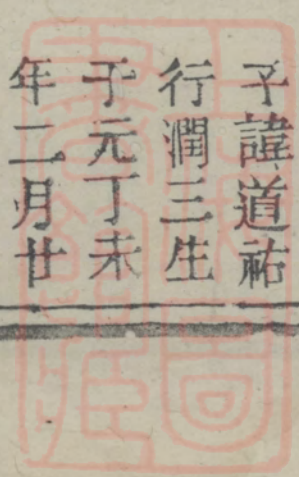 子諱道祐
行潤三生
于元丁未
年二月廿